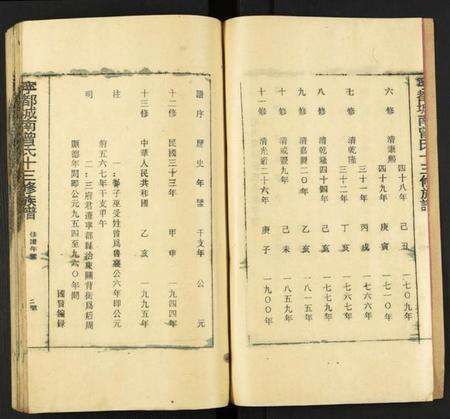 寧都城南曾氏十三修族譜
六修 清康熙 四十八年 己丑 一七〇九年
四十九年 庚寅 一七一〇年
七修 清乾隆 三十一年 丙戌 一七六六年
三十二年 丁亥 一七六七年
八修 清乾隆四十四年 己亥 一七七九年
九修 清嘉慶二〇年 乙亥 一八一五年
十修 清咸豐九年 己未 一八五九年
十一修 清光緒二十六年 庚子 一九〇〇年
譜序 歷史年號 干支年 公元
十二修 民國三十三年 甲申 一九四四年
十三修 中華人民共和國 乙亥 一九九五年
注 一:子巫受姓曾爲魯襄公六年即公元
前五六七年干支甲午
明 二:三府君遷寧都縣治東關背街爲后周
顯德年間即公元九五四至九六〇年間
國賢編録
寧都城南曾氏十三修族譜
修譜年
二